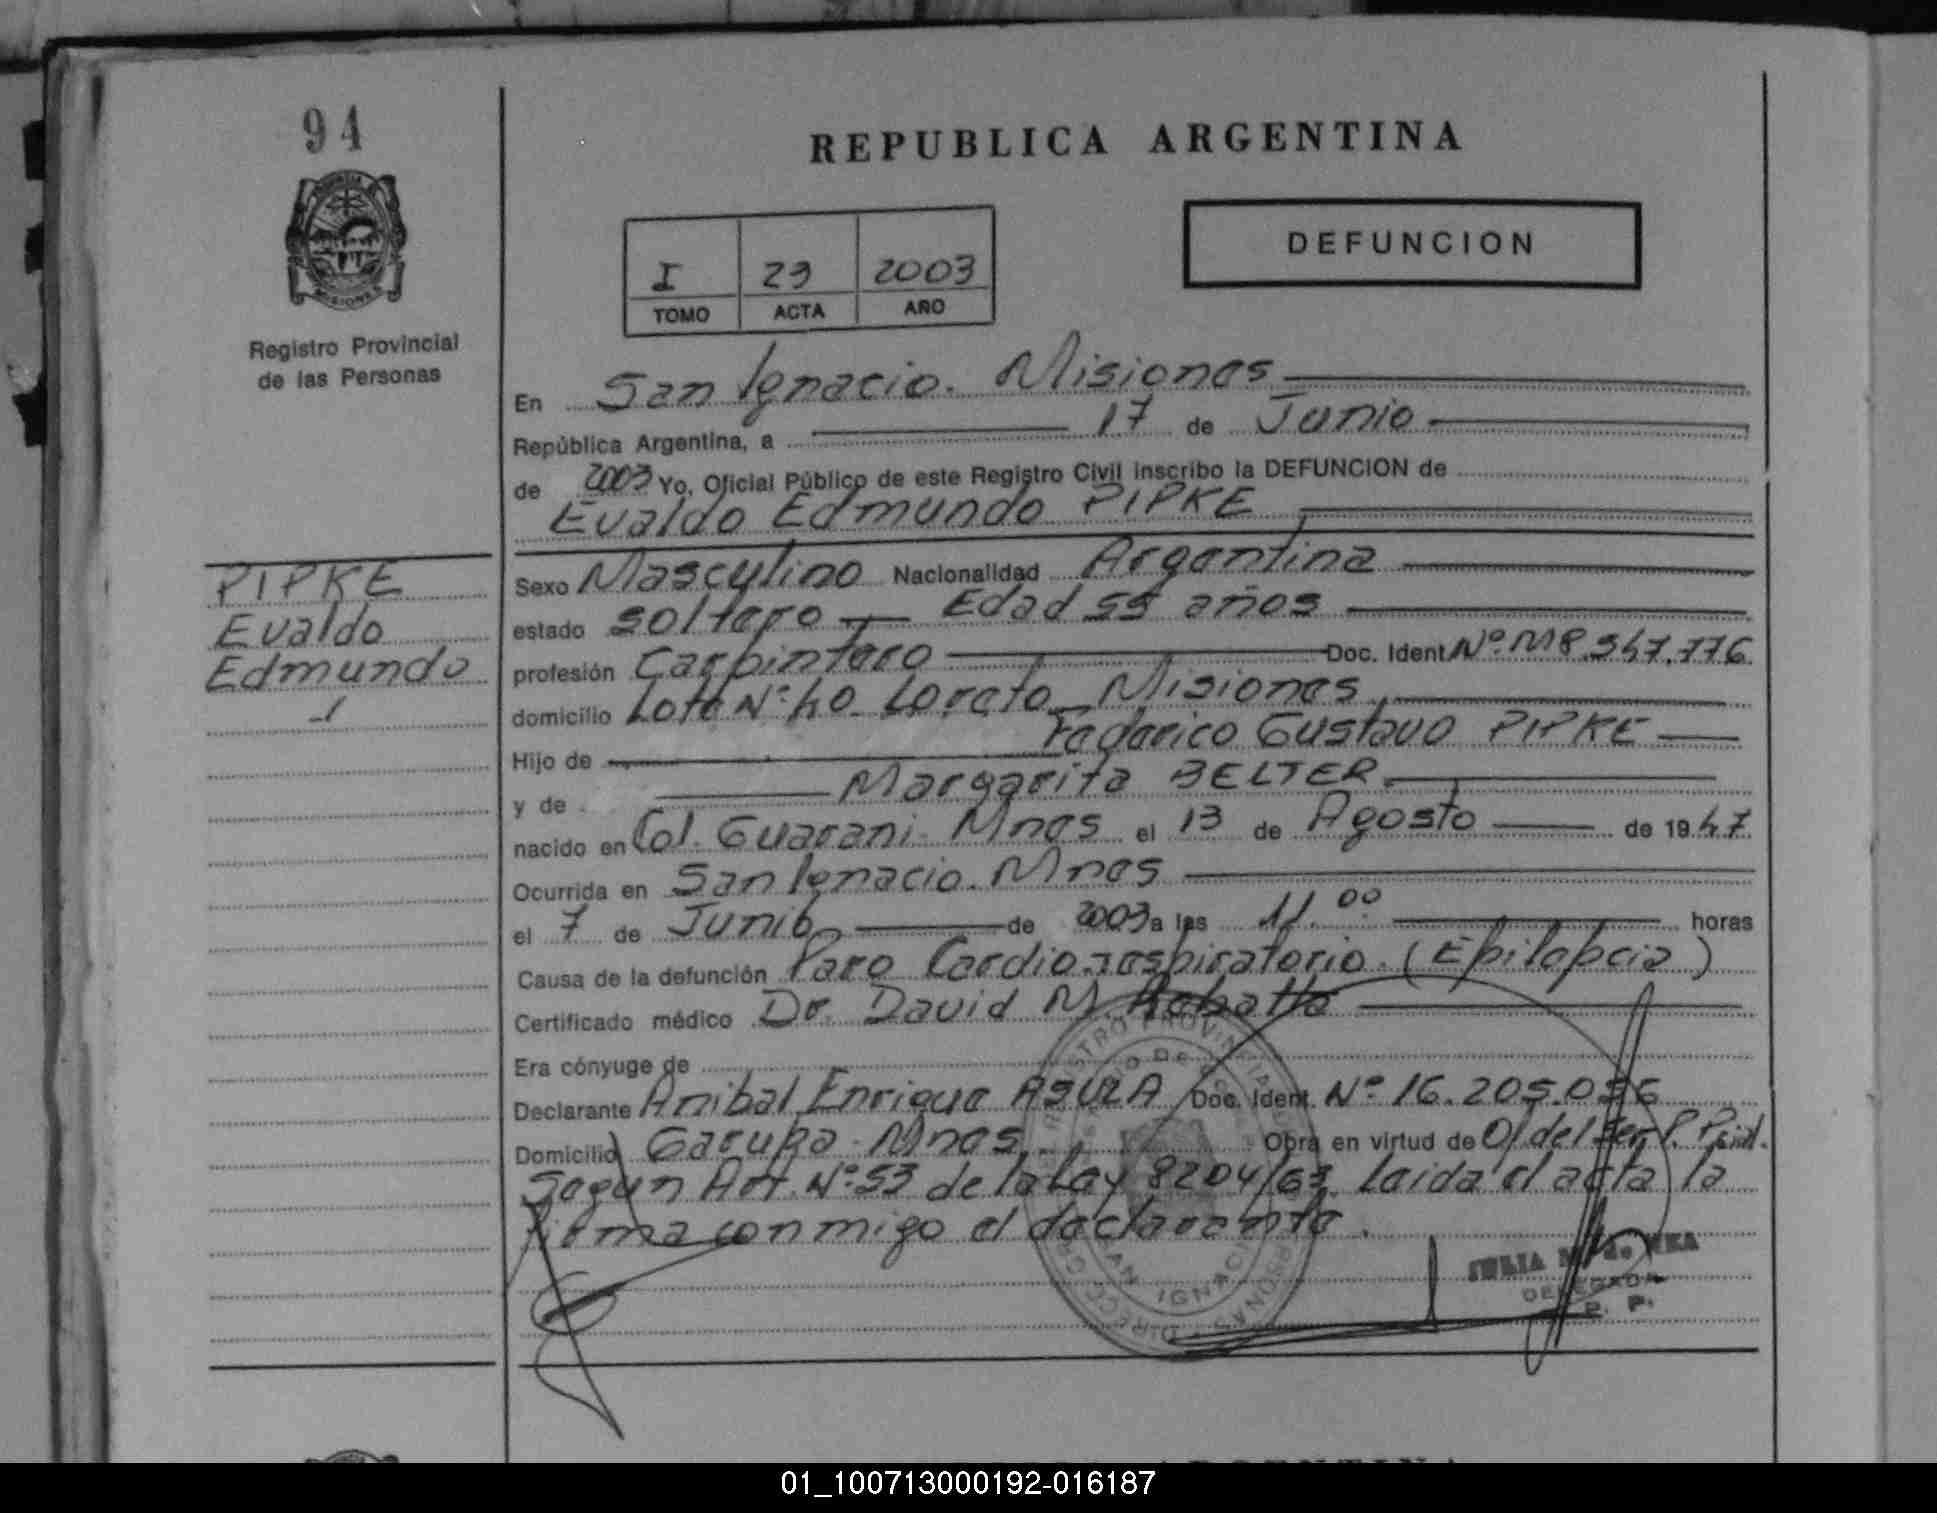 94
REPUBLICA ARGENTINA
DEFUNCION
I 23 2003
TOMO ACTA AÑO
PROVINCIA DE
MISIONES
Registro Provincial
de las Personas
En San Ignacio. Misiones
República Argentina, a 17 de Junio
de 2003 Yo, Oficial Público de este Registro Civil inscribo la DEFUNCION de
Evaldo Edmundo PIPKE
PIPKE
Evaldo
Edmundo
Sexo Masculino Nacionalidad Argentina
estado soltero Edad 55 años
profesión Carpintero Doc. Ident. Nº. M8.347.776
domicilio Lote Nº: 40 Loreto Misiones
Hijo de Federico Gustavo PIPKE
y de Margarita BELTER
nacido en Col. Guarani. Mnes el 13 de Agosto de 1947
Ocurrida en San Ignacio. Mnes
el 7 de Junio de 2003 a las 11.00 horas
Causa de la defunción Paro Cardiorrespiratorio. (Epilepcia)
Certificado médico Dr. David M.
Era cónyuge de
Declarante Anibal Enrique Doc. Ident. Nº 16.205.056
Domicilio Garupa. Mnes Obra en virtud de O/ del Ser. P. Pcial.
Segun Art. Nº: 53 de la Ley 8204/63. Leida el acta la
firma conmigo el declarante.
SAN IGNACIO
JULIA
DELEGADA
R. P. P.
ARGENTINA
01_100713000192-016187